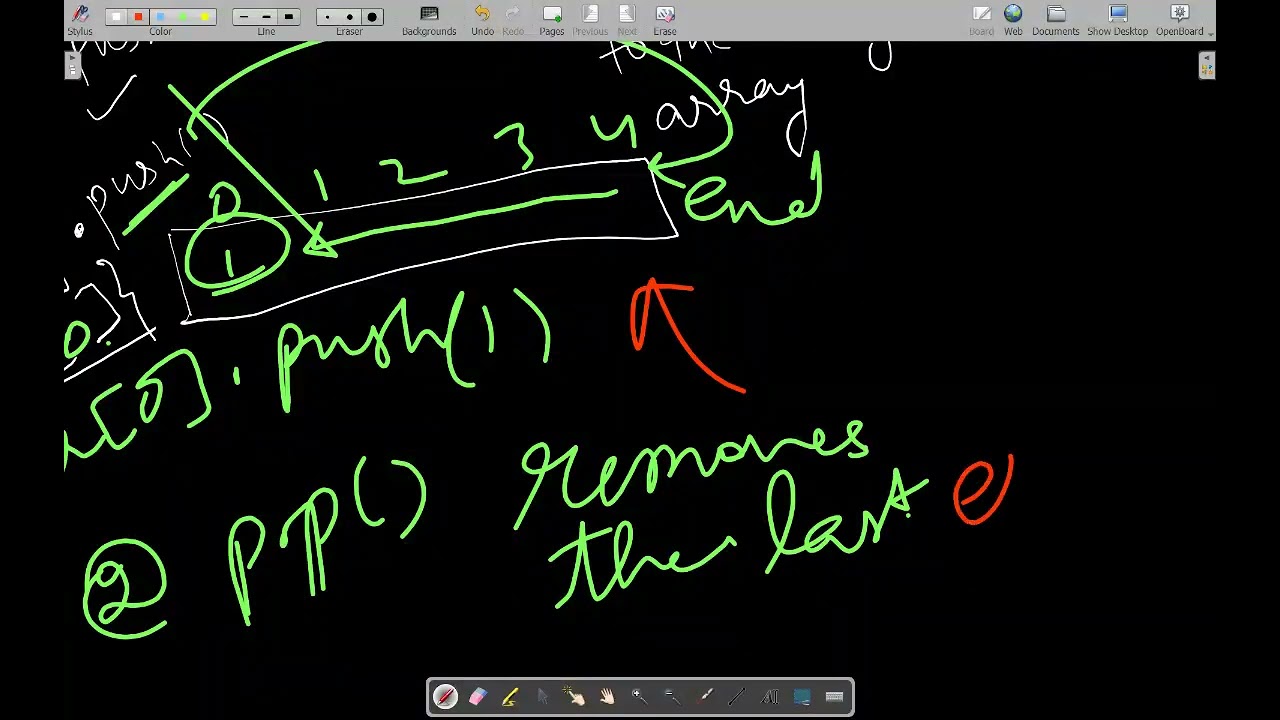 Stylus Color Line Eraser Backgrounds Undo Redo Pages Previous Next Erase Board Web Documents Show Desktop OpenBoard
to the
array
.push()
0 1 2 3 4
end
1
[0].push(1)
② pop() removes
the last e